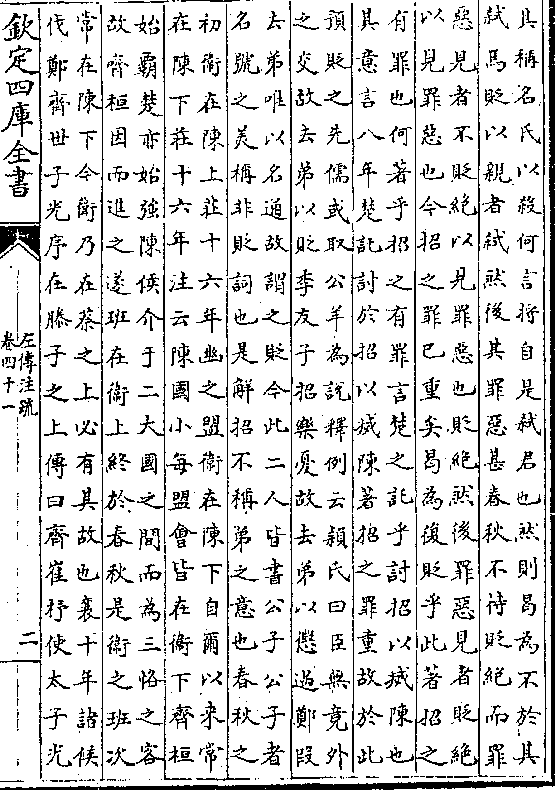 其稱名氏以殺何言將自是弑君也然則曷為不於其
弑焉貶以親者弑然後其罪惡甚春秋不待貶絶而罪
惡見者不貶絶以見罪惡也貶絶然後罪惡見者貶絶
以見罪惡也今招之罪已重矣曷為復貶乎此著招之
有罪也何著乎招之有罪言楚之託乎討招以滅陳也
其意言八年楚託討於招以滅陳著招之罪重故於此
預貶之先儒或取公羊為説釋例云潁氏曰臣無竟外
之交故去弟以貶季友子招樂憂故去弟以懲過鄭段
去弟唯以名通故謂之貶今此二人皆書公子公子者
名號之美稱非貶詞也是解招不稱弟之意也春秋之
初衛在陳上莊十六年幽之盟衛在陳下自爾以來常
在陳下莊十六年注云陳國小每盟會皆在衛下齊桓
始霸楚亦始強陳侯介于二大國之間而為三恪之客
故齊桓因而進之遂班在衛上終於春秋是衛之班次
常在陳下今衛乃在蔡之上必有其故也襄十年諸侯
伐鄭齊世子光序在滕子之上傳曰齊崔杼使太子光
欽定四庫全書
左傳注疏
卷四十一
二